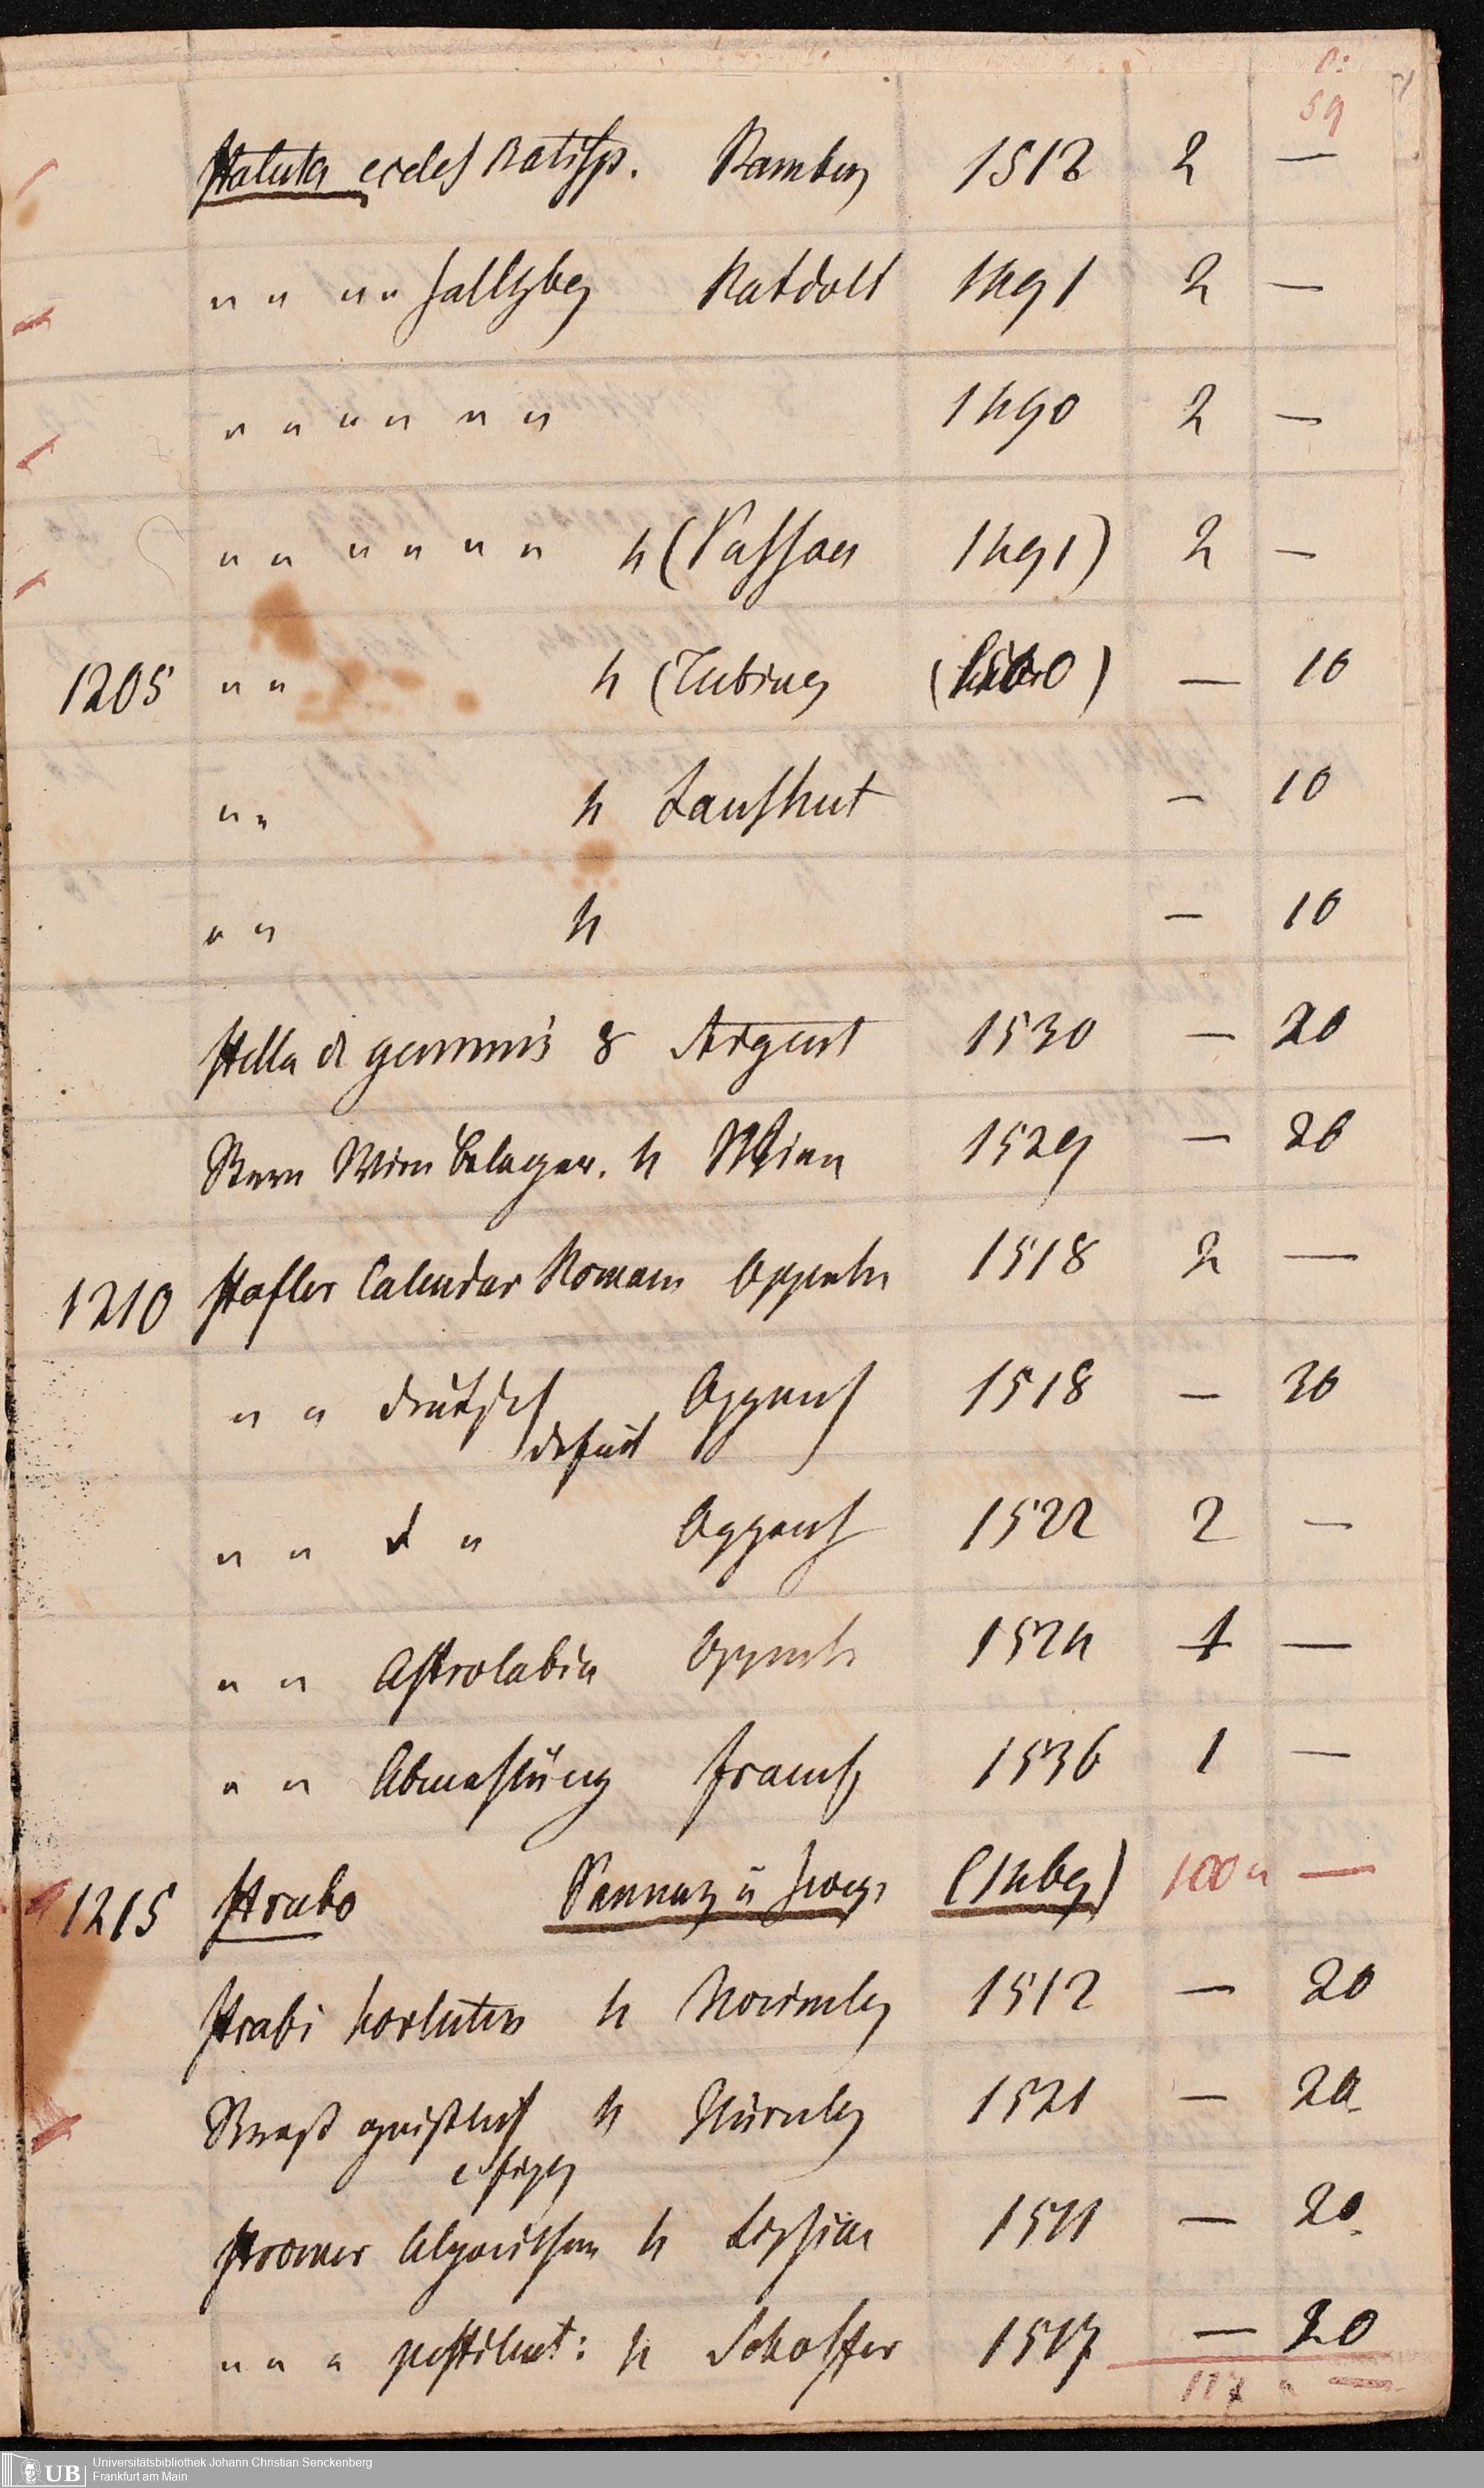 p:
59
Statuta eccles Ratisp. Bamberg 1512 2 —
" " " " Saltzbg Ratdolt 1491 2 —
" " " " " " 1490 2 —
" " " " " " 4 (Passau 1491) 2 —
1205 " " 4 (Tubing (1500) — 10
" " 4 Lanshut — 10
" " 4 — 10
Stella di gemmis 8 Argent 1530 — 20
Stern Wien belager. 4 Wien 1529 — 20
1210 Stofler Calendar Roman Oppenh 1518 2 —
" " deutsch Oppenh 1518 — 30
defect
" " d " Oppenh 1522 2 —
" " Astrolabia Oppenh 1524 1 —
" " Abmessung Francf 1536 1 —
1215 Strabo Pannarz u Sweg. (1469) 100 " —
Strabi hortulus 4 Norimbg 1512 — 20
geistlich 4 Nürnbg 1521 — 20
Stromer Algorithm 4 Lipsiae 15 — 20
" " " pestilent: 4 Schoffer 1517 — 20
117 " —
UB
Universitätsbibliothek Johann Christian Senckenberg
Frankfurt am Main